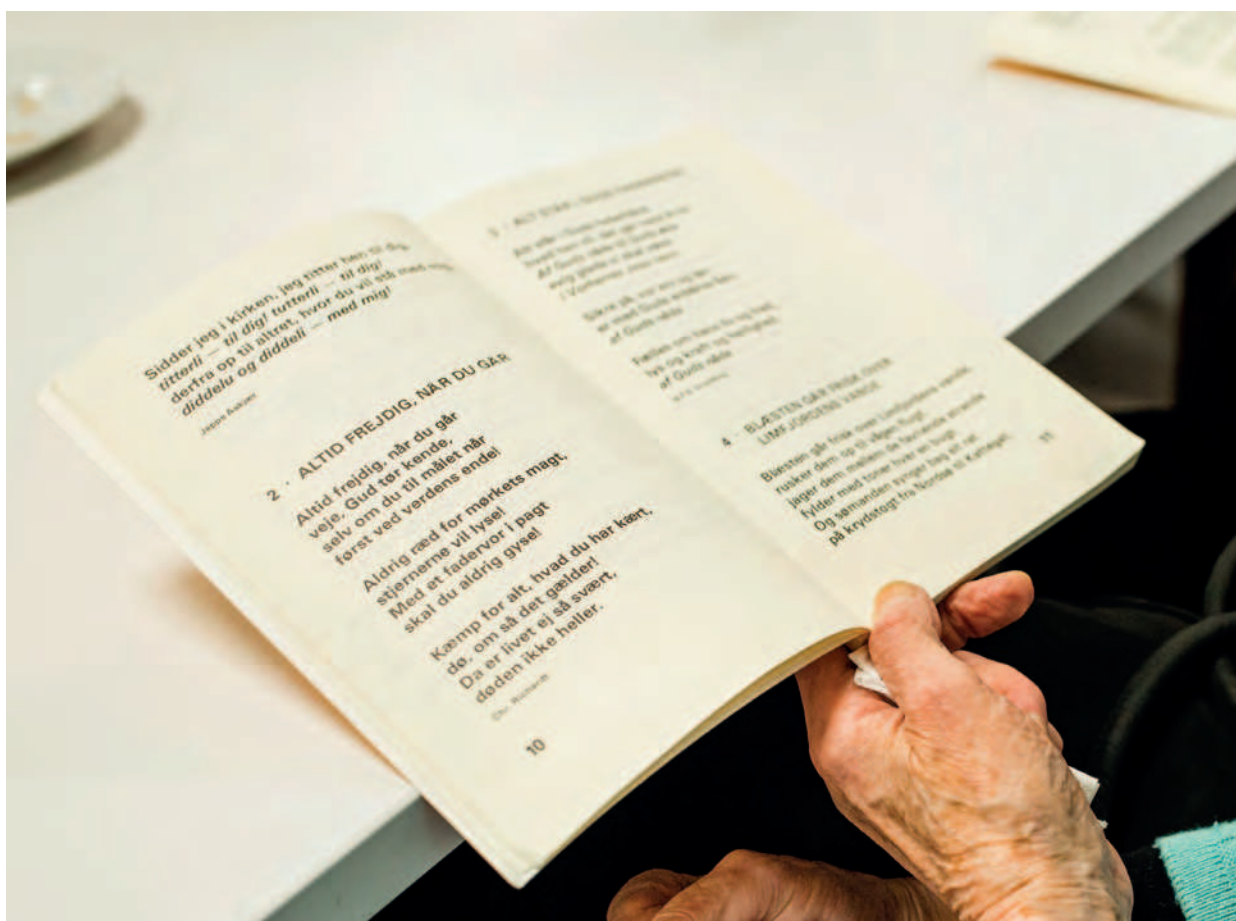 Sidder jeg i kirken, jeg titter hen til dig,
titterli — til dig! tutterli — til dig!
derfra op til altret, hvor du vil stå med mig,
diddelu og diddeli — med mig!
Jeppe Aakjær
2 · ALTID FREJDIG, NÅR DU GÅR
Altid frejdig, når du går
veje, Gud tør kende,
selv om du til målet når
først ved verdens ende!
Aldrig ræd for mørkets magt,
stjernerne vil lyse!
Med et fadervor i pagt
skal du aldrig gyse!
Kæmp for alt, hvad du har kært,
dø, om så det gælder!
Da er livet ej så svært,
døden ikke heller.
Chr. Richardt
10
3 · ALT STÅR I GUDS
Alt står i Guds
af Guds nåde
er med Guds
af Guds nåde
Fælles om
lys og kraft og
af Guds nåde
4 · BLÆSTEN GÅR FRISK OVER
LIMFJORDENS VANDE
Blæsten går frisk over Limfjordens vande,
rusker dem op til vågen flugt,
jager dem mellem de favnende strande
fylder med toner hver en bugt.
Og sømanden synger bag sit rat
på krydstogt fra Nordsø til Kattegat.
11